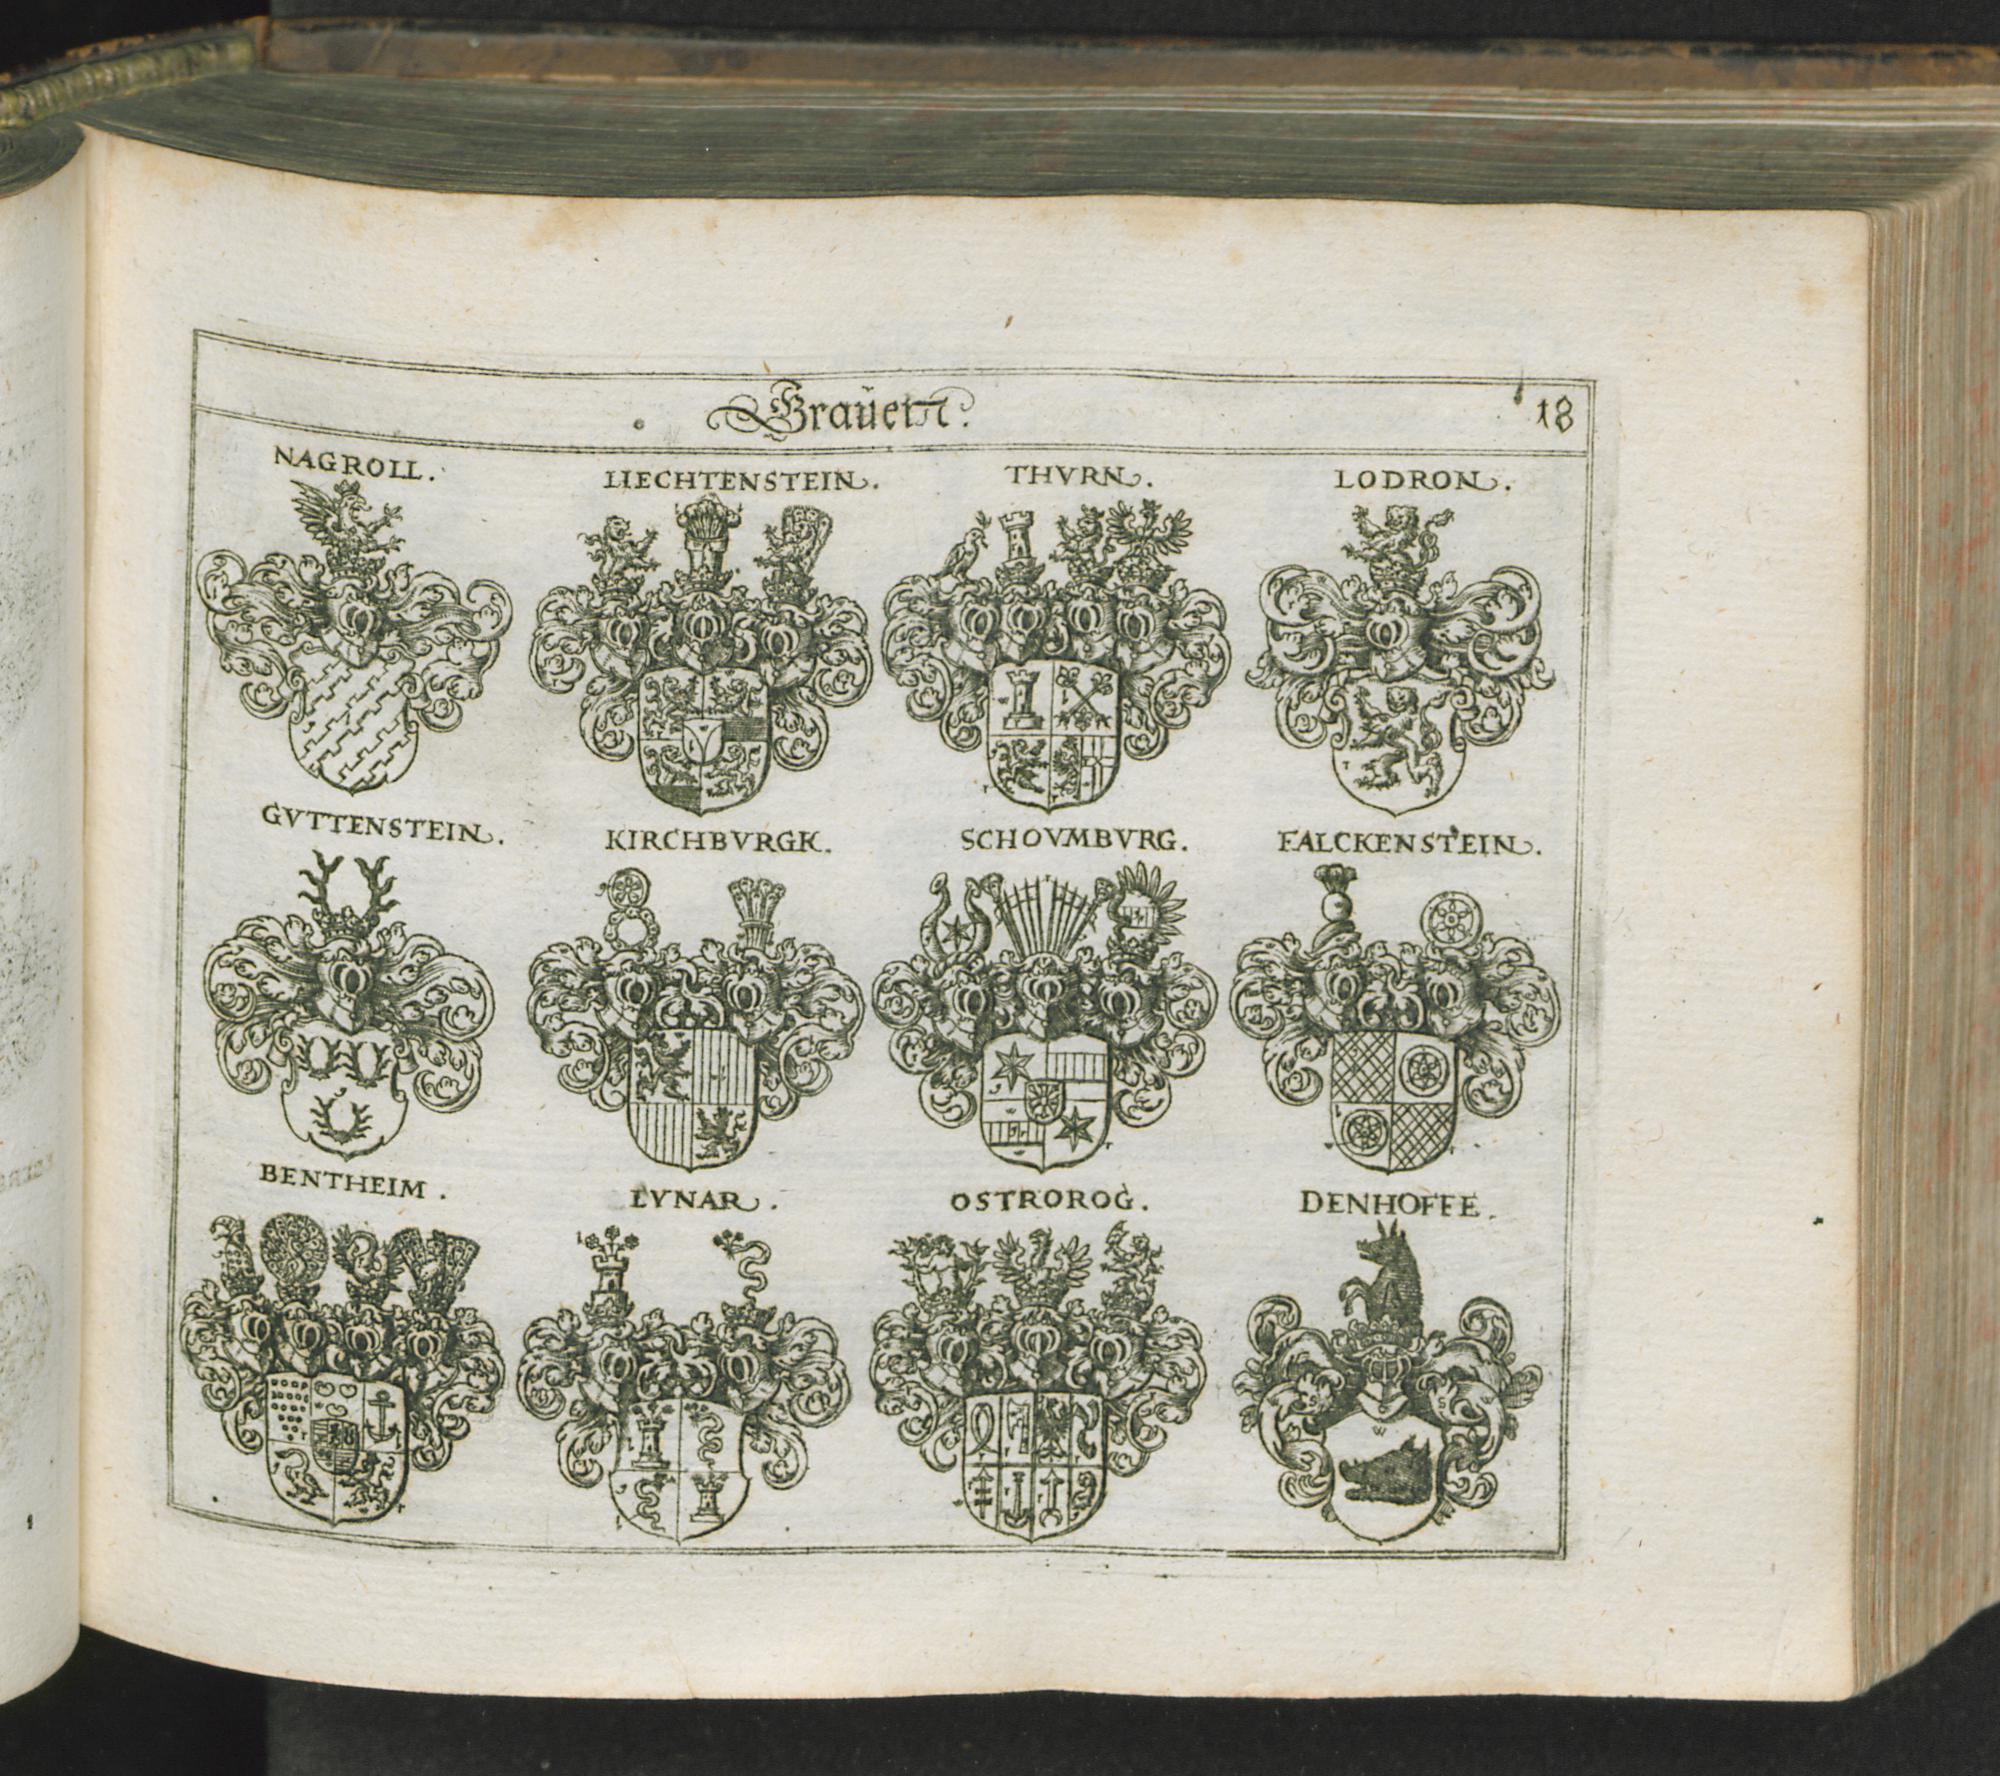 Graüen.
18
NAGROLL.
LIECHTENSTEIN.
THVRN.
LODRON.
GVTTENSTEIN.
KIRCHBVRGK.
SCHOVMBVRG.
FALCKENSTEIN.
BENTHEIM.
LYNAR.
OSTROROG.
DENHOFFE.